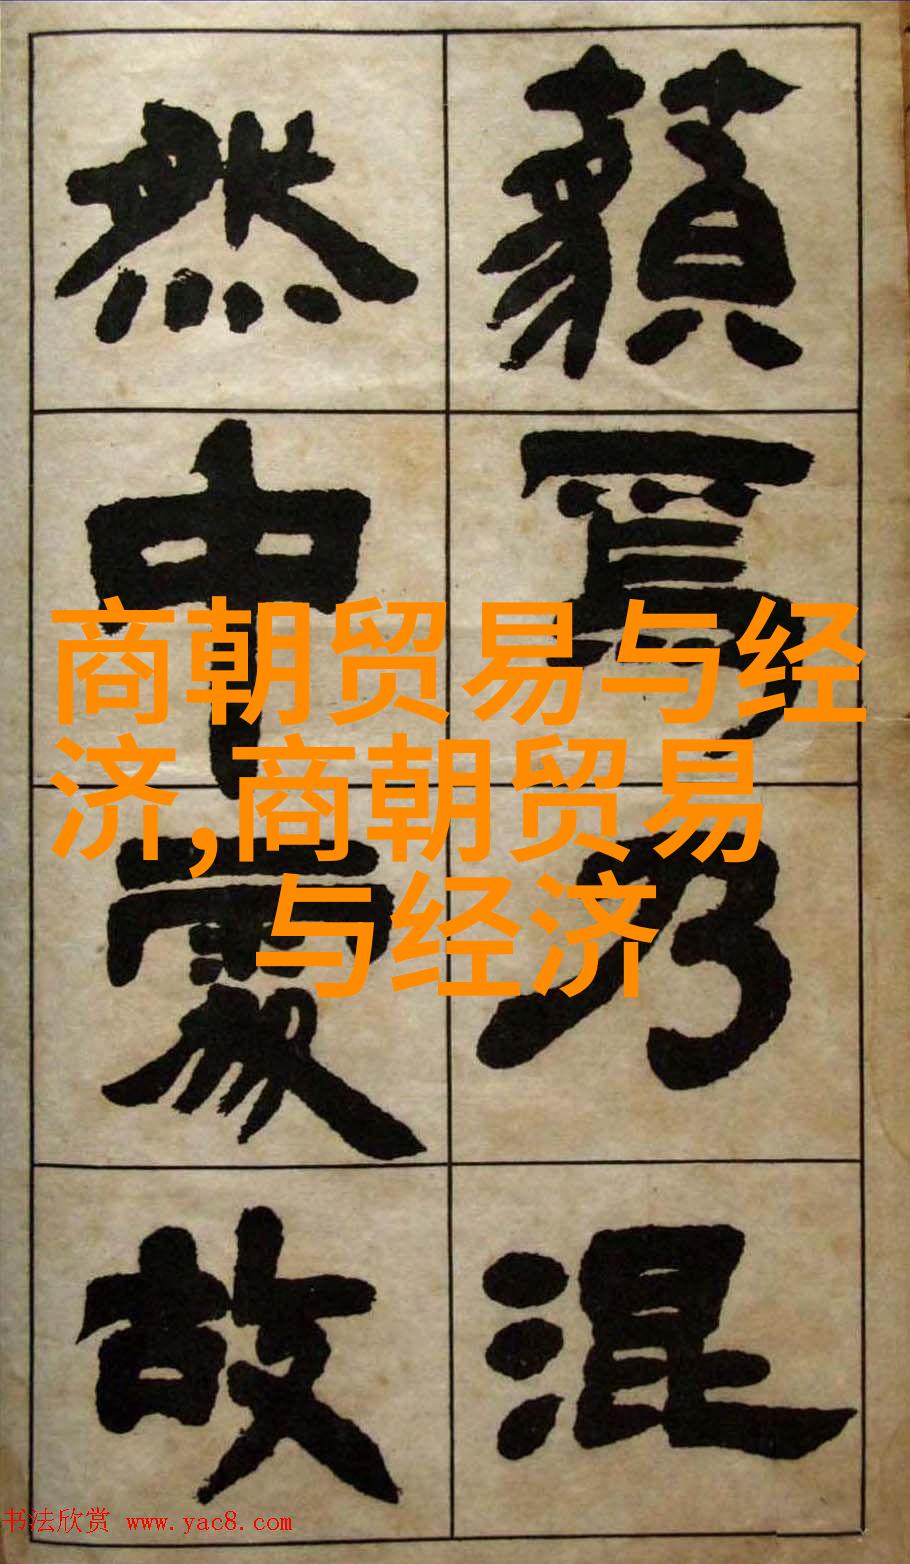 藐焉乃混
然中處故
商朝贸易与经
济,商朝贸易
与经济
书法欣赏 www.yac8.com